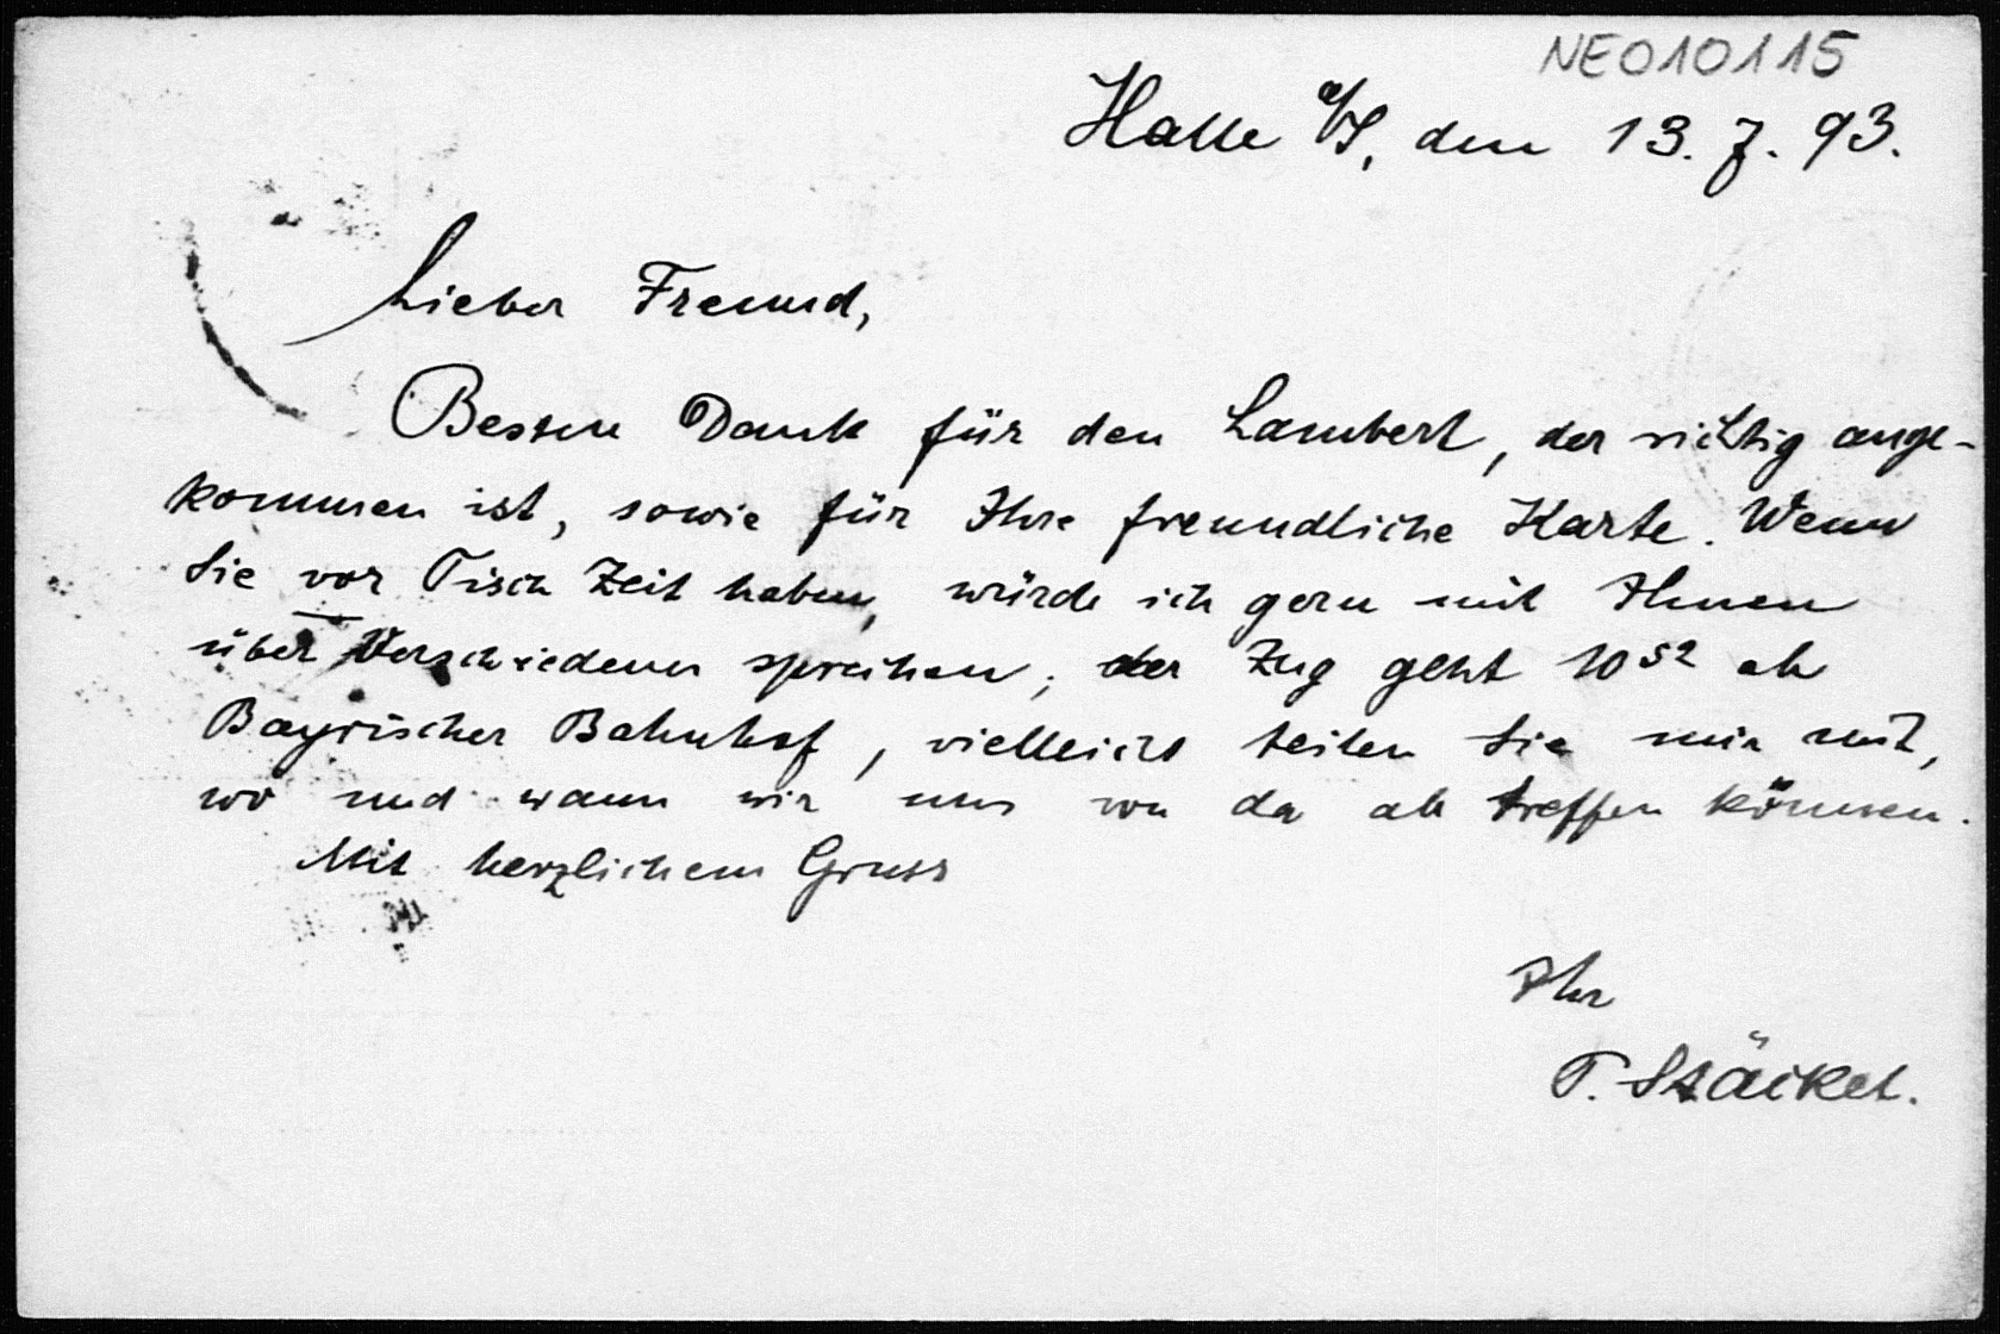 NE010115
Halle a/S, den 13. 7. 93.
Lieber Freund,
Besten Dank für den Lambert, der richtig ange-
kommen ist, sowie für Ihre freundliche Karte. Wenn
Sie vor Tisch Zeit haben, würde ich gern mit Ihnen
über Verschiedenes sprechen; der Zug geht 10 52 ab
Bayrischer Bahnhof, vielleicht teilen Sie mir mit,
wo und wann wir uns von da ab treffen können.
Mit herzlichem Gruss
Ihr
P. Stäckel.